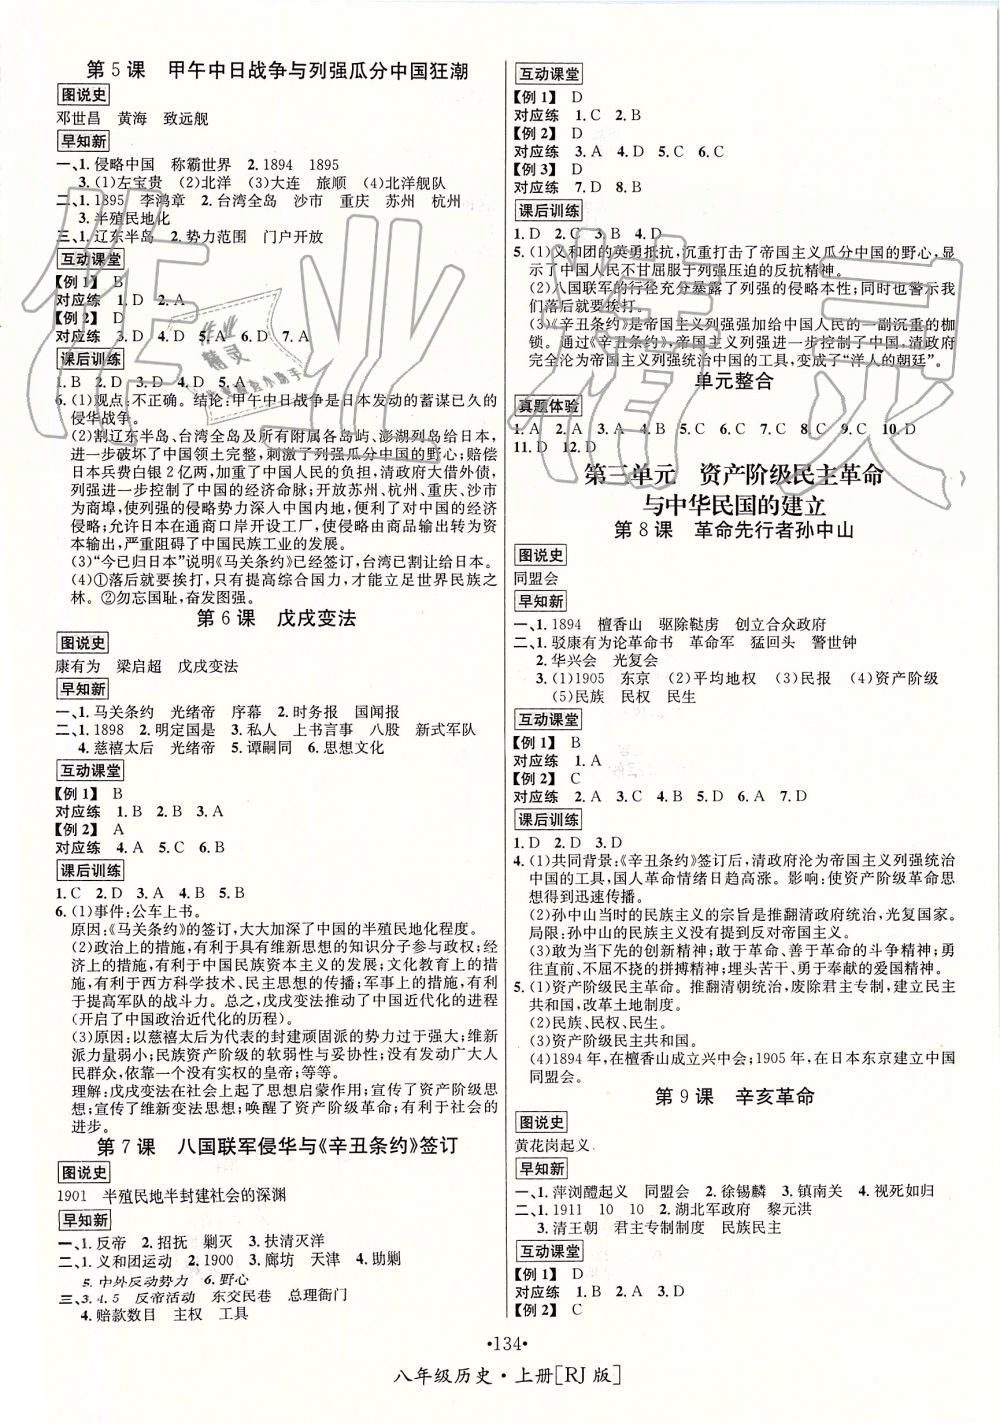 第5课 甲午中日战争与列强瓜分中国狂潮
图说史
邓世昌 黄海 致远舰
早知新
一、1.侵略中国 称霸世界 2.1894 1895
3.(1)左宝贵 (2)北洋 (3)大连 旅顺 (4)北洋舰队
二、1.1895 李鸿章 2.台湾全岛 沙市 重庆 苏州 杭州
3.半殖民地化
三、1.辽东半岛 2.势力范围 门户开放
互动课堂
【例1】 B
对应练 1.D 2.A
【例2】 D
对应练 3.D 4.D 5.A 6.D 7.A
课后训练
1.B 2.D 3.D 4.D 5.A
6.(1)观点:不正确。结论:甲午中日战争是日本发动的蓄谋已久的
侵华战争。
(2)割辽东半岛、台湾全岛及所有附属各岛屿、澎湖列岛给日本,
进一步破坏了中国领土完整,刺激了列强瓜分中国的野心;赔偿
日本兵费白银2亿两,加重了中国人民的负担,清政府大借外债,
列强进一步控制了中国的经济命脉;开放苏州、杭州、重庆、沙市
为商埠,使列强的侵略势力深入中国内地,便利了对中国的经济
侵略;允许日本在通商口岸开设工厂,使侵略由商品输出转为资
本输出,严重阻碍了中国民族工业的发展。
(3)“今已归日本”说明《马关条约》已经签订,台湾已割让给日本。
(4)①落后就要挨打,只有提高综合国力,才能立足世界民族之
林。②勿忘国耻,奋发图强。
第6课 戊戌变法
图说史
康有为 梁启超 戊戌变法
早知新
一、1.马关条约 光绪帝 序幕 2.时务报 国闻报
二、1.1898 2.明定国是 3.私人 上书言事 八股 新式军队
4.慈禧太后 光绪帝 5.谭嗣同 6.思想文化
互动课堂
【例1】 B
对应练 1.B 2.B 3.A
【例2】 A
对应练 4.A 5.C 6.B
课后训练
1.C 2.D 3.A 4.D 5.D
6.(1)事件:公车上书。
原因:《马关条约》的签订,大大加深了中国的半殖民地化程度。
(2)政治上的措施,有利于具有维新思想的知识分子参与政权;经
济上的措施,有利于中国民族资本主义的发展;文化教育上的措
施,有利于西方科学技术、民主思想的传播;军事上的措施,有利
于提高军队的战斗力。总之,戊戌变法推动了中国近代化的进程
(开启了中国政治近代化的历程)。
(3)原因:以慈禧太后为代表的封建顽固派的势力过于强大;维新
派力量弱小;民族资产阶级的软弱性与妥协性;没有发动广大人
民群众,依靠一个没有实权的皇帝;等等。
理解:戊戌变法在社会上起了思想启蒙作用;宣传了资产阶级思
想;宣传了维新变法思想;唤醒了资产阶级革命;有利于社会的
进步。
第7课 八国联军侵华与《辛丑条约》签订
图说史
1901 半殖民地半封建社会的深渊
早知新
一、1.反帝 2.招抚 剿灭 3.扶清灭洋
二、1.义和团运动 2.1900 3.廊坊 天津 4.助剿
5.中外反动势力 6.野心
三、3.4.5 反帝活动 东交民巷 总理衙门
4.赔款数目 主权 工具
互动课堂
【例1】 D
对应练 1.C 2.B
【例2】 D
对应练 3.A 4.D 5.C 6.C
【例3】 D
对应练 7.D 8.B
课后训练
1.D 2.D 3.C 4.A
5.(1)义和团的英勇抵抗,沉重打击了帝国主义瓜分中国的野心,显
示了中国人民不甘屈服于列强压迫的反抗精神。
(2)八国联军的行径充分暴露了列强的侵略本性;同时也警示我
们落后就要挨打。
(3)《辛丑条约》是帝国主义列强强加给中国人民的一副沉重的枷
锁。通过《辛丑条约》,帝国主义列强进一步控制了中国,清政府
完全沦为帝国主义列强统治中国的工具,变成了“洋人的朝廷”。
单元整合
真题体验
1.A 2.A 3.A 4.B 5.D 6.C 7.C 8.C 9.C 10.D
11.D 12.D
第三单元 资产阶级民主革命
与中华民国的建立
第8课 革命先行者孙中山
图说史
同盟会
早知新
一、1.1894 檀香山 驱除鞑虏 创立合众政府
二、1.驳康有为论革命书 革命军 猛回头 警世钟
2.华兴会 光复会
3.(1)1905 东京 (2)平均地权 (3)民报 (4)资产阶级
(5)民族 民权 民生
互动课堂
【例1】 B
对应练 1.A
【例2】 C
对应练 2.A 3.C 4.B 5.D 6.A 7.D
课后训练
1.D 2.D 3.D
4.(1)共同背景:《辛丑条约》签订后,清政府沦为帝国主义列强统治
中国的工具,国人革命情绪日趋高涨。影响:使资产阶级革命思
想得到迅速传播。
(2)孙中山当时的民族主义的宗旨是推翻清政府统治,光复国家。
局限:孙中山的民族主义没有提到反对帝国主义。
(3)敢为当下先的创新精神;敢于革命、善于革命的斗争精神;勇
往直前、不畏失败的拼搏精神;埋头苦干、勇于奉献的爱国精神。
5.(1)资产阶级民主革命。推翻清朝统治,废除君主专制,建立民主
共和国,改革土地制度。
(2)民族、民权、民生。
(3)资产阶级民主共和国。
(4)1894年,在檀香山成立兴中会;1905年,在日本东京建立中国
同盟会。
第9课 辛亥革命
图说史
黄花岗起义
早知新
一、1.萍浏醴起义 同盟会 2.徐锡麟 3.镇南关 4.视死如归
二、1.1911 10 10 2.湖北军政府 黎元洪
3.清王朝 君主专制制度 民族民主
互动课堂
【例1】 D
对应练 1.B 2.A 3.D
【例2】 C
·134·
八年级历史·上册[RJ版]
作业精灵
作业
精灵